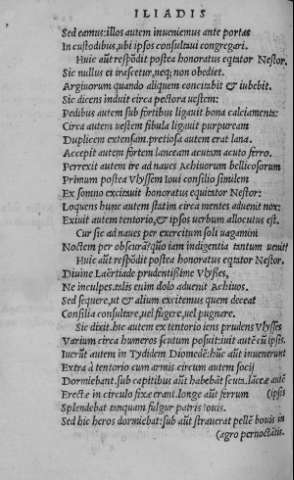 ILIADIS
Sed eamus: illos autem inueniemus ante portas
In custodibus, ubi ipsos consului congregari.
Huic aũt respõdit postea honoratus equitator Nestor.
Sic nullus ei irascetur, neq; non obediet.
Argiuorum quando aliquem concitabit & iubebit.
Sic dicens induit circa pectora uestem:
Pedibus autem sub fortibus ligauit bona calciamenta:
Circa autem uestem fibula ligauit purpuream
Duplicem extensam. pretiosa autem erat lana.
Accepit autem fortem lanceam acutam acuto ferro.
Perrexit autem ire ad naues Achiuorum bellicosorum
Primum postea Vlyssem Ioui consilio similem
Ex somno excitauit honoratus equitator Nestor:
Loquens hunc autem statim circa mentes aduenit uox:
Exiuit autem tentorio, & ipsos uerbum allocutus est.
Cur sic ad naues per exercitum soli uagamini
Noctem per obscurã? quo iam indigentia tantum uenit?
Huic aũt respõdit postea honoratus equitator Nestor.
Diuine Laërtiade prudentissime Vlysses,
Ne inculpes. talis enim dolo aduenit Achiuos.
Sed sequere, ut & alium excitemus quem deceat
Consilia consultare, uel fugere, uel pugnare.
Sic dixit. hic autem ex tentorio iens prudens Vlysses
Varium circa humeros scutum posuit: iuit autẽ cũ ipsis.
Iuerũt autem in Tydidem Diomedẽ: hũc aũt inuenerunt
Extra à tentorio cum armis circum autem socij
Dormiebant. sub capitibus aũt habebãt scuta. lãceæ autẽ
Erectæ in circulo fixæ erant. longe aũt ferrum (ipsis
Splendebat tanquam fulgur patris Iouis.
Sed hic heros dormiebat: sub aũt strauerat pellẽ bouis in
(agro pernoctãtis.